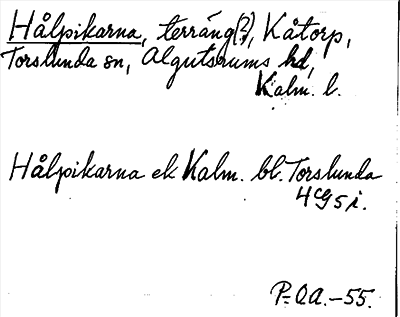 Hålpikarna, terräng(?), Kåtorp,
Torslunda sn, Algutsrums hd,
Kalm. l.
Hålpikarna ek Kalm. bl. Torslunda
4G5i.
P-O.A.-55.